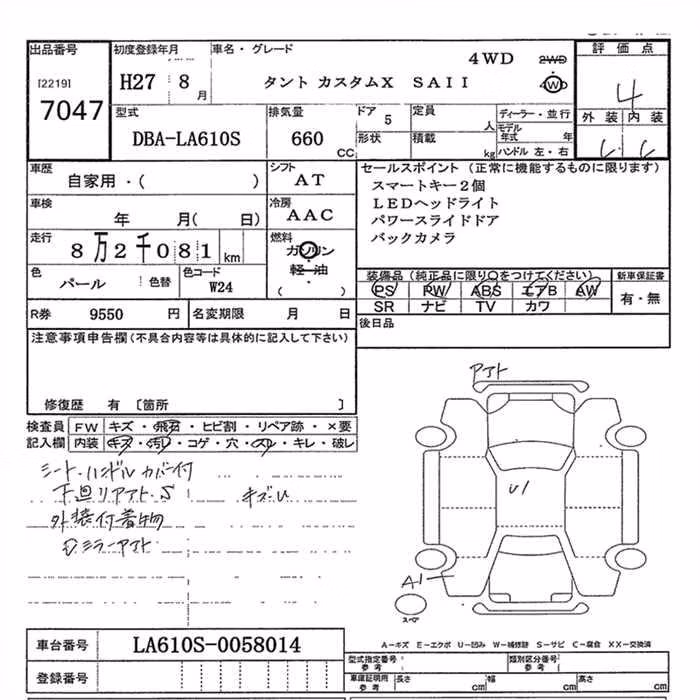 出品番号 初度登録年月 車名・グレード 4WD 2WD 評価点
[2219] H27 8月 タント カスタムX SAII 4WD 4
7047 外装 内装
型式 排気量 ドア 5 定員 人 ディーラー・並行 C C
DBA-LA610S 660 CC 形状 積載 kg モデル年式 年
ハンドル 左・右
車歴 シフト セールスポイント (正常に機能するものに限ります)
自家用・( ) AT スマートキー2個
車検 冷房 LEDヘッドライト
年 月( 日) AAC パワースライドドア
走行 燃料 バックカメラ
8万2千081 km ガソリン
軽・油
( )
色 色替 色コード 装備品(純正品に限り○をつけてください) 新車保証書
パール W24 PS PW ABS エアB AW 有・無
SR ナビ TV カワ
R券 9550 円 名変期限 月 日 後日品
注意事項申告欄(不具合内容等は具体的に記入して下さい)
修復歴 有 〔箇所 〕
検査員 FW キズ・飛石・ヒビ割・リペア跡・×要
記入欄 内装 キズ・汚レ・コゲ・穴・スレ・キレ・破レ
シート・ハンドル カバー付
下回リアト・S キズU
外装付着物
Dミラーアト
アト
U1
A1
スペア
A-キズ E-エクボ U-凹み W-補修跡 S-サビ C-腐食 XX-交換済
車台番号 LA610S-0058014
型式指定番号 参考 類別区分番号 参考
登録番号 車庫証明用 参考 長さ cm 幅 cm 高さ cm